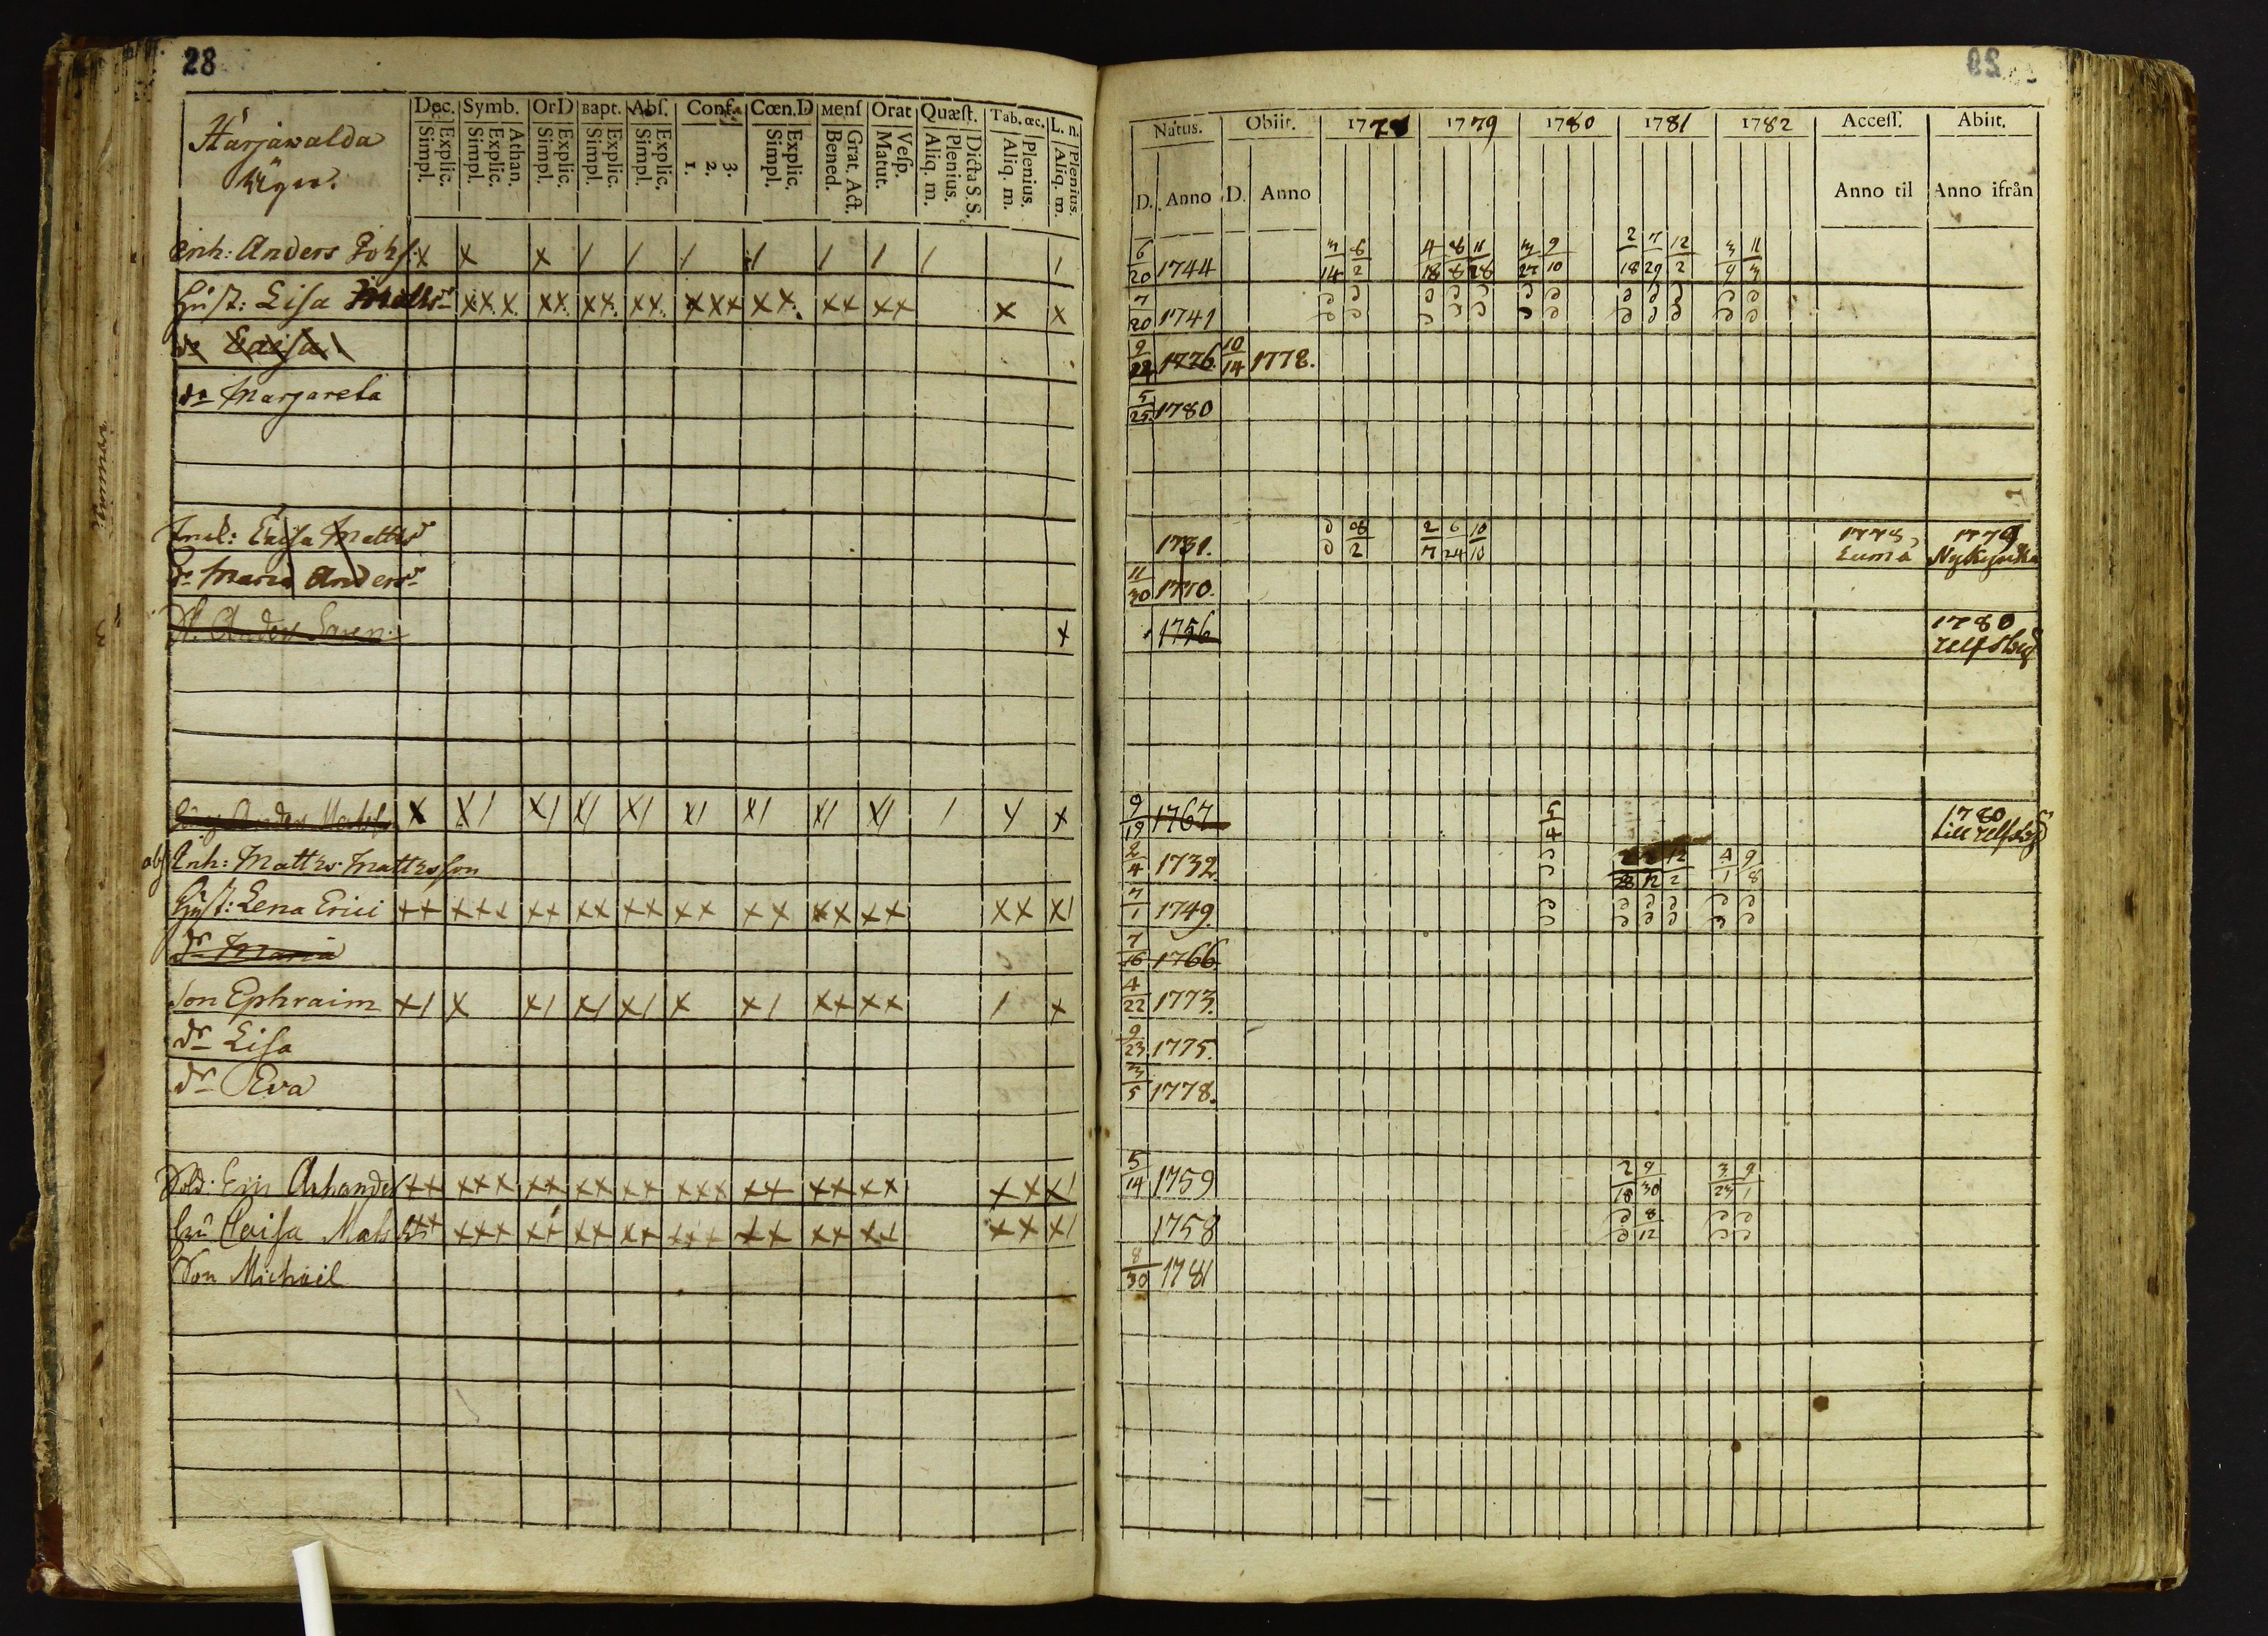 28
Härjäwalda
Ägor.
Dec. Symb. OrD Bapt. Abſ. Conf. Cœn.D Menſ Orat Quæſt. Tab. œc. L. n.
Explic. Simpl. Athan. Explic. Simpl. Explic. Simpl. Explic. Simpl. Explic. Simpl. 3. 2. 1. Explic. Simpl. Grat. Act. Bened. Veſp. Matut. Dicta S. S. Plenius. Aliq. m. Plenius. Aliq. m. Plenius. Aliq. m.
Enh: Anders Johſ: x x x / / / / / / / /
Huſt: Liſa Mattsr xxx xx xx xx xxx xx xx xx x x
dr Caiſa
dr Margareta
Inh: Caiſa Mattsr
dr Maria Andersr
Anders x
Anders Matsſ x x/ x/ x/ x/ x/ x/ x/ x/ / x x
abſ Enh: Matts Mattsſon
Huſt: Lena Erici xx xxx xx xx xx xx xx xx xx xx x/
dr Maria
Son Ephraim x/ x x/ x/ x/ x x/ xx xx / x
dr Liſa
dr Eva
Sold: Eric xx xxx xx xx xx xxx xx xx xx xx x/
hu Caiſa Mats xx xxx xx xx xx xxx xx xx xx xx x/
Son Michael
29
Natus. Obiit. 1778 1779 1780 1781 1782 Acceſſ. Abiit.
D. Anno D. Anno Anno til Anno ifrån
6/20 1744 3/14 8/2 4/18 8/8 11/28 3/27 9/10 2/18 7/29 12/2 3/9 11/3
7/20 1741
9/22 1776. 10/14 1778.
5/25 1780
1731. 8/2 2/7 6/24 10/10 1778 Eumå 1779 Nykyrka
11/30 1770.
1756 1780 Ulfsby
9/19 1767 5/4 1780 till Ulfsby
2/4 1732. 2/28 12/2 4/1 9/8
7/1 1749.
7/16 1766
4/22 1773.
9/23 1775.
3/5 1778.
5/14 1759 2/18 9/30 3/23 9/1
1758 8/12
8/30 1781